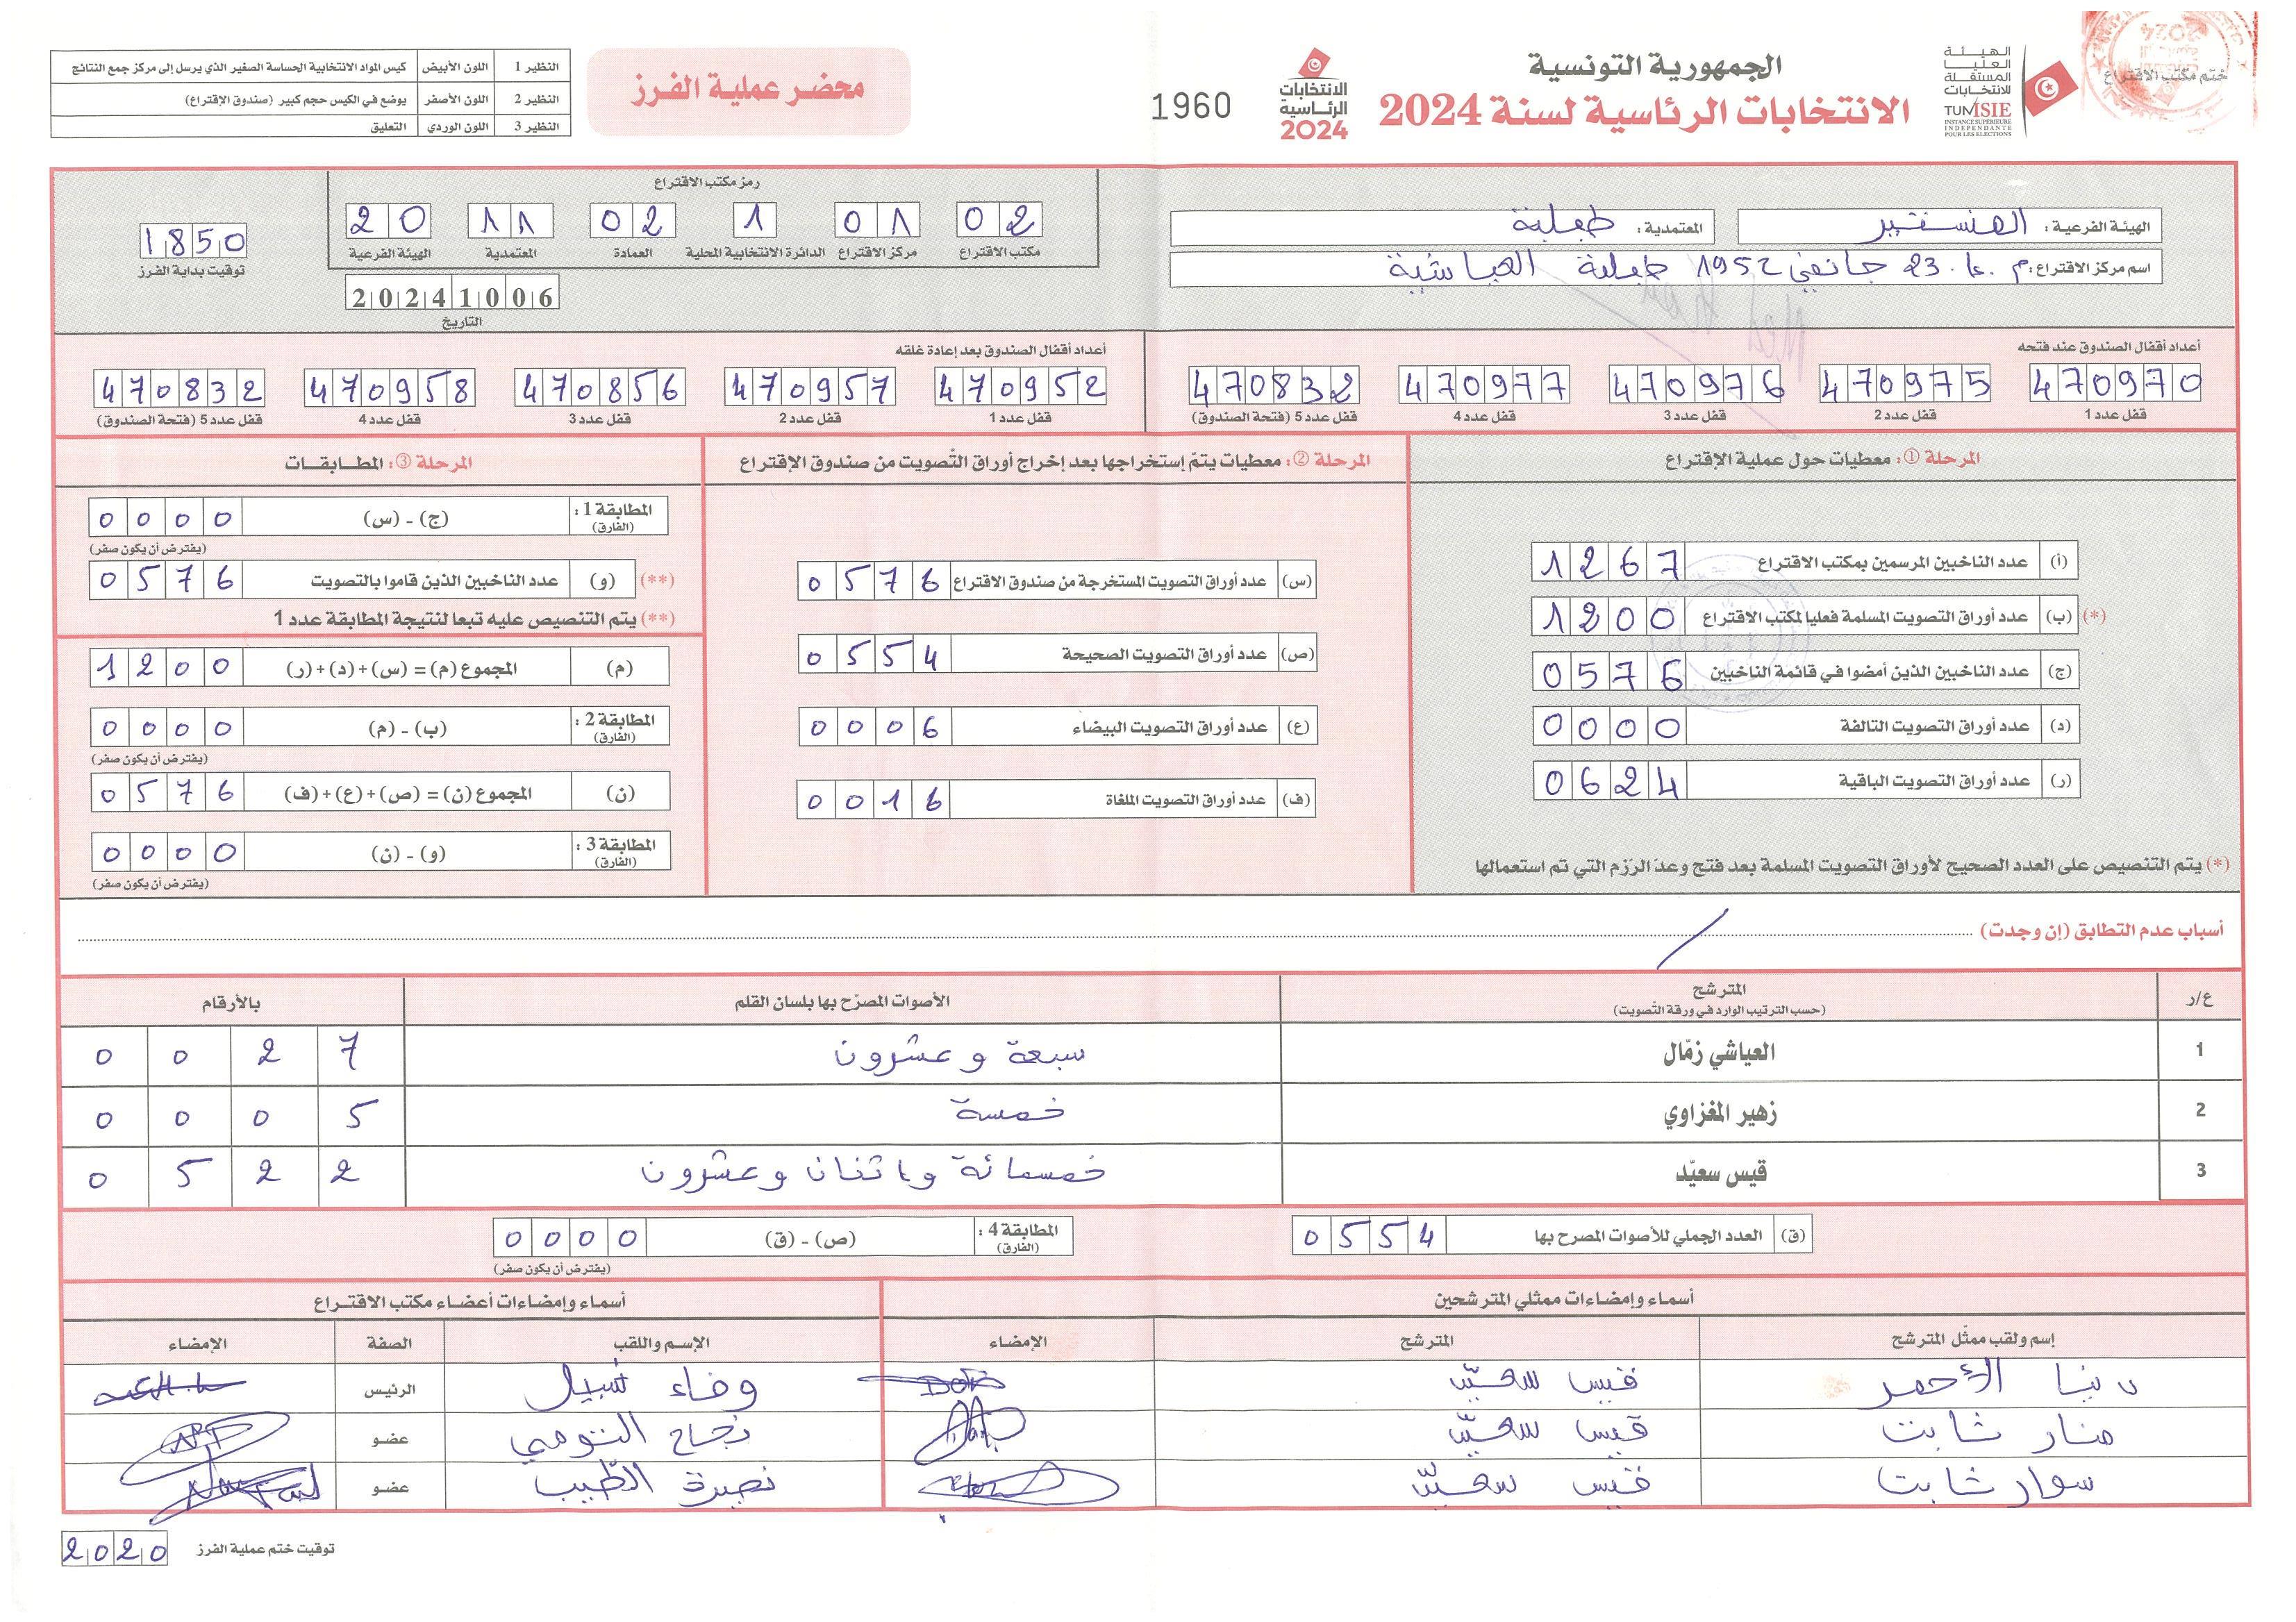 ختم مكتب الاقتراع
الهيئة العليا المستقلة للانتخابات
TUNISIE
INSTANCE SUPÉRIEURE INDÉPENDANTE POUR LES ÉLECTIONS
الجمهورية التونسية
الانتخابات الرئاسية لسنة 2024
الانتخابات الرئاسية 2024
1960
محضر عملية الفرز
النظير 1 اللون الأبيض كيس المواد الانتخابية الحساسة الصغير الذي يرسل إلى مركز جمع النتائج
النظير 2 اللون الأصفر يوضع في الكيس حجم كبير (صندوق الإقتراع)
النظير 3 اللون الوردي التعليق
الهيئة الفرعية: المنستير
المعتمدية: طبلبة
اسم مركز الاقتراع: م.إ. 23 جانفي 1952 طبلبة العياشية
رمز مكتب الاقتراع
02 مكتب الاقتراع
01 مركز الاقتراع
1 الدائرة الانتخابية المحلية
02 العمادة
11 المعتمدية
20 الهيئة الفرعية
20241006
التاريخ
1850
توقيت بداية الفرز
أعداد أقفال الصندوق عند فتحه
470970 قفل عدد 1
470975 قفل عدد 2
470976 قفل عدد 3
470977 قفل عدد 4
470832 قفل عدد 5 (فتحة الصندوق)
أعداد أقفال الصندوق بعد إعادة غلقه
470952 قفل عدد 1
470957 قفل عدد 2
470856 قفل عدد 3
470958 قفل عدد 4
470832 قفل عدد 5 (فتحة الصندوق)
المرحلة ①: معطيات حول عملية الإقتراع
(أ) عدد الناخبين المرسمين بمكتب الاقتراع 1267
(*) (ب) عدد أوراق التصويت المسلمة فعليا لمكتب الاقتراع 1200
(ج) عدد الناخبين الذين أمضوا في قائمة الناخبين 0576
(د) عدد أوراق التصويت التالفة 0000
(ر) عدد أوراق التصويت الباقية 0624
(*) يتم التنصيص على العدد الصحيح لأوراق التصويت المسلمة بعد فتح وعدّ الرّزم التي تم استعمالها
المرحلة ②: معطيات يتمّ إستخراجها بعد إخراج أوراق التّصويت من صندوق الإقتراع
(س) عدد أوراق التصويت المستخرجة من صندوق الاقتراع 0576
(ص) عدد أوراق التصويت الصحيحة 0554
(ع) عدد أوراق التصويت البيضاء 0006
(ف) عدد أوراق التصويت الملغاة 0016
المرحلة ③: المطابقات
المطابقة 1: (الفارق) (ج) - (س) 0000
(يفترض أن يكون صفر)
(**) (و) عدد الناخبين الذين قاموا بالتصويت 0576
(**) يتم التنصيص عليه تبعا لنتيجة المطابقة عدد 1
(م) المجموع (م) = (س) + (د) + (ر) 1200
المطابقة 2: (الفارق) (ب) - (م) 0000
(يفترض أن يكون صفر)
(ن) المجموع (ن) = (ص) + (ع) + (ف) 0576
المطابقة 3: (الفارق) (و) - (ن) 0000
(يفترض أن يكون صفر)
أسباب عدم التطابق (إن وجدت) /
ع/ر المترشح (حسب الترتيب الوارد في ورقة التّصويت) الأصوات المصرّح بها بلسان القلم بالأرقام
1 العياشي زمّال سبعة وعشرون 0027
2 زهير المغزاوي خمسة 0005
3 قيس سعيّد خمسمائة واثنان وعشرون 0522
(ق) العدد الجملي للأصوات المصرح بها 0554
المطابقة 4: (الفارق) (ص) - (ق) 0000
(يفترض أن يكون صفر)
أسماء وإمضاءات ممثلي المترشحين
إسم ولقب ممثّل المترشح المترشح الإمضاء
دنيا الأحمر قيس سعيّد
منار ثابت قيس سعيّد
سوار ثابت قيس سعيّد
أسماء وإمضاءات أعضاء مكتب الاقتراع
الإسم واللقب الصفة الإمضاء
وفاء شبيل الرئيس
نجاح التومي عضو
نصيرة الطّبيب عضو
توقيت ختم عملية الفرز 2020